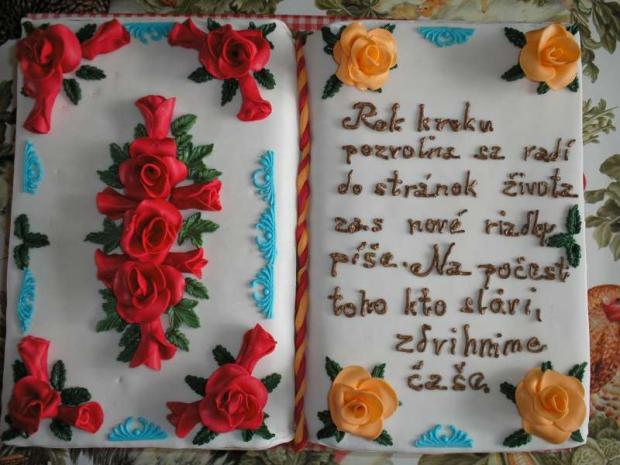 Rok kroku
pozvolna sa radí
do stránok života
zas nové riadky
píše. Na počesť
toho kto slávi,
zdvihnime
čaše.